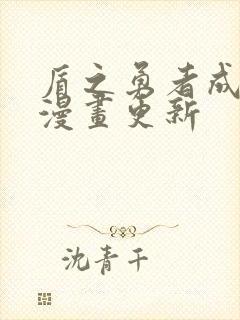 盾之勇者成
漫畫更新
沈青干